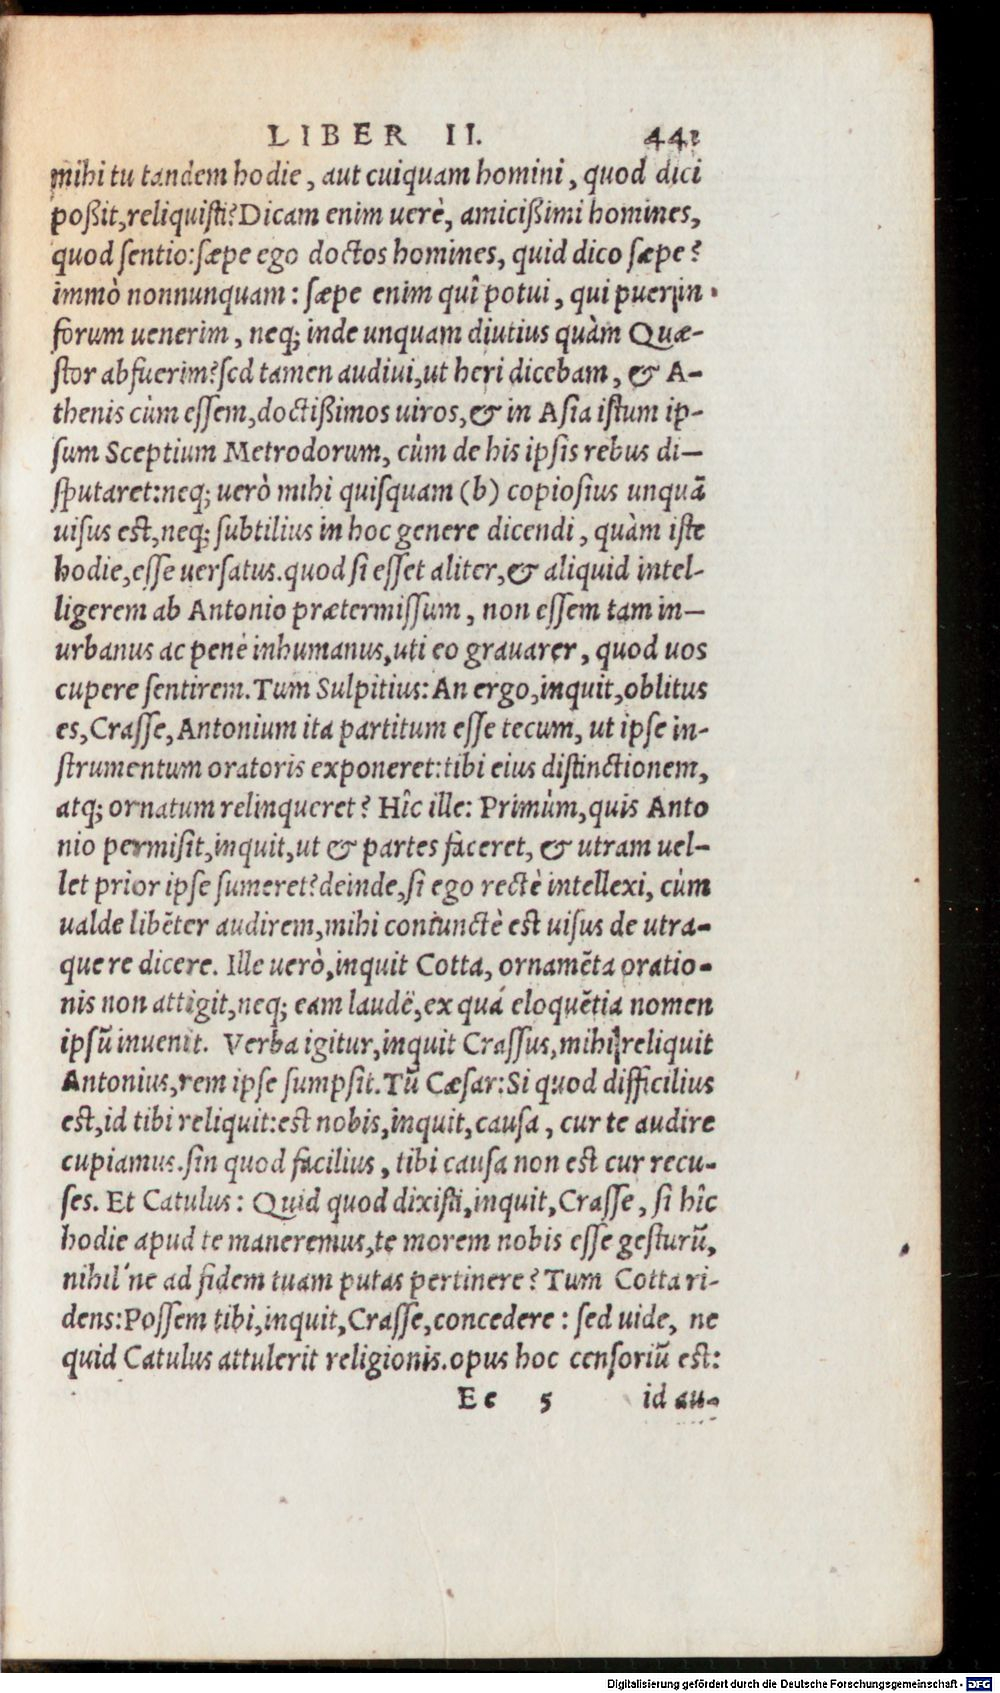 LIBER II. 441
mihi tu tandem hodie, aut cuiquam homini, quod dici
poßit, reliquisti? Dicam enim uerè, amicißimi homines,
quod sentio: sæpe ego doctos homines, quid dico sæpe?
immò nonnunquam: sæpe enim quî potui, qui puer in
forum uenerim, neq; inde unquam diutius quàm Quæ-
stor abfuerim? sed tamen audiui, ut heri dicebam, & A-
thenis cùm essem, doctißimos uiros, & in Asia istum ip-
sum Sceptium Metrodorum, cùm de his ipsis rebus di-
sputaret: neq; uerò mihi quisquam (b) copiosius unquā
uisus est, neq; subtilius in hoc genere dicendi, quàm iste
hodie, esse uersatus. quod si esset aliter, & aliquid intel-
ligerem ab Antonio prætermissum, non essem tam in-
urbanus ac penè inhumanus, uti eo grauarer, quod uos
cupere sentirem. Tum Sulpitius: An ergo, inquit, oblitus
es, Crasse, Antonium ita partitum esse tecum, ut ipse in-
strumentum oratoris exponeret: tibi eius distinctionem,
atq; ornatum relinqueret? Hîc ille: Primùm, quis Anto
nio permisit, inquit, ut & partes faceret, & utram uel-
let prior ipse sumeret? deinde, si ego rectè intellexi, cùm
ualde libēter audirem, mihi coniunctè est uisus de utra-
que re dicere. Ille uerò, inquit Cotta, ornamēta oratio-
nis non attigit, neq; eam laudē, ex quá eloquētia nomen
ipsū inuenit. Verba igitur, inquit Crassus, mihi reliquit
Antonius, rem ipse sumpsit. Tū Cæsar: Si quod difficilius
est, id tibi reliquit: est nobis, inquit, causa, cur te audire
cupiamus. sin quod facilius, tibi causa non est cur recu-
ses. Et Catulus: Quid quod dixisti, inquit, Crasse, si hîc
hodie apud te maneremus, te morem nobis esse gesturū,
nihil'ne ad fidem tuam putas pertinere? Tum Cotta ri-
dens: Possem tibi, inquit, Crasse, concedere: sed uide, ne
quid Catulus attulerit religionis. opus hoc censoriū est:
Ee 5 id au-
Digitalisierung gefördert durch die Deutsche Forschungsgemeinschaft - DFG